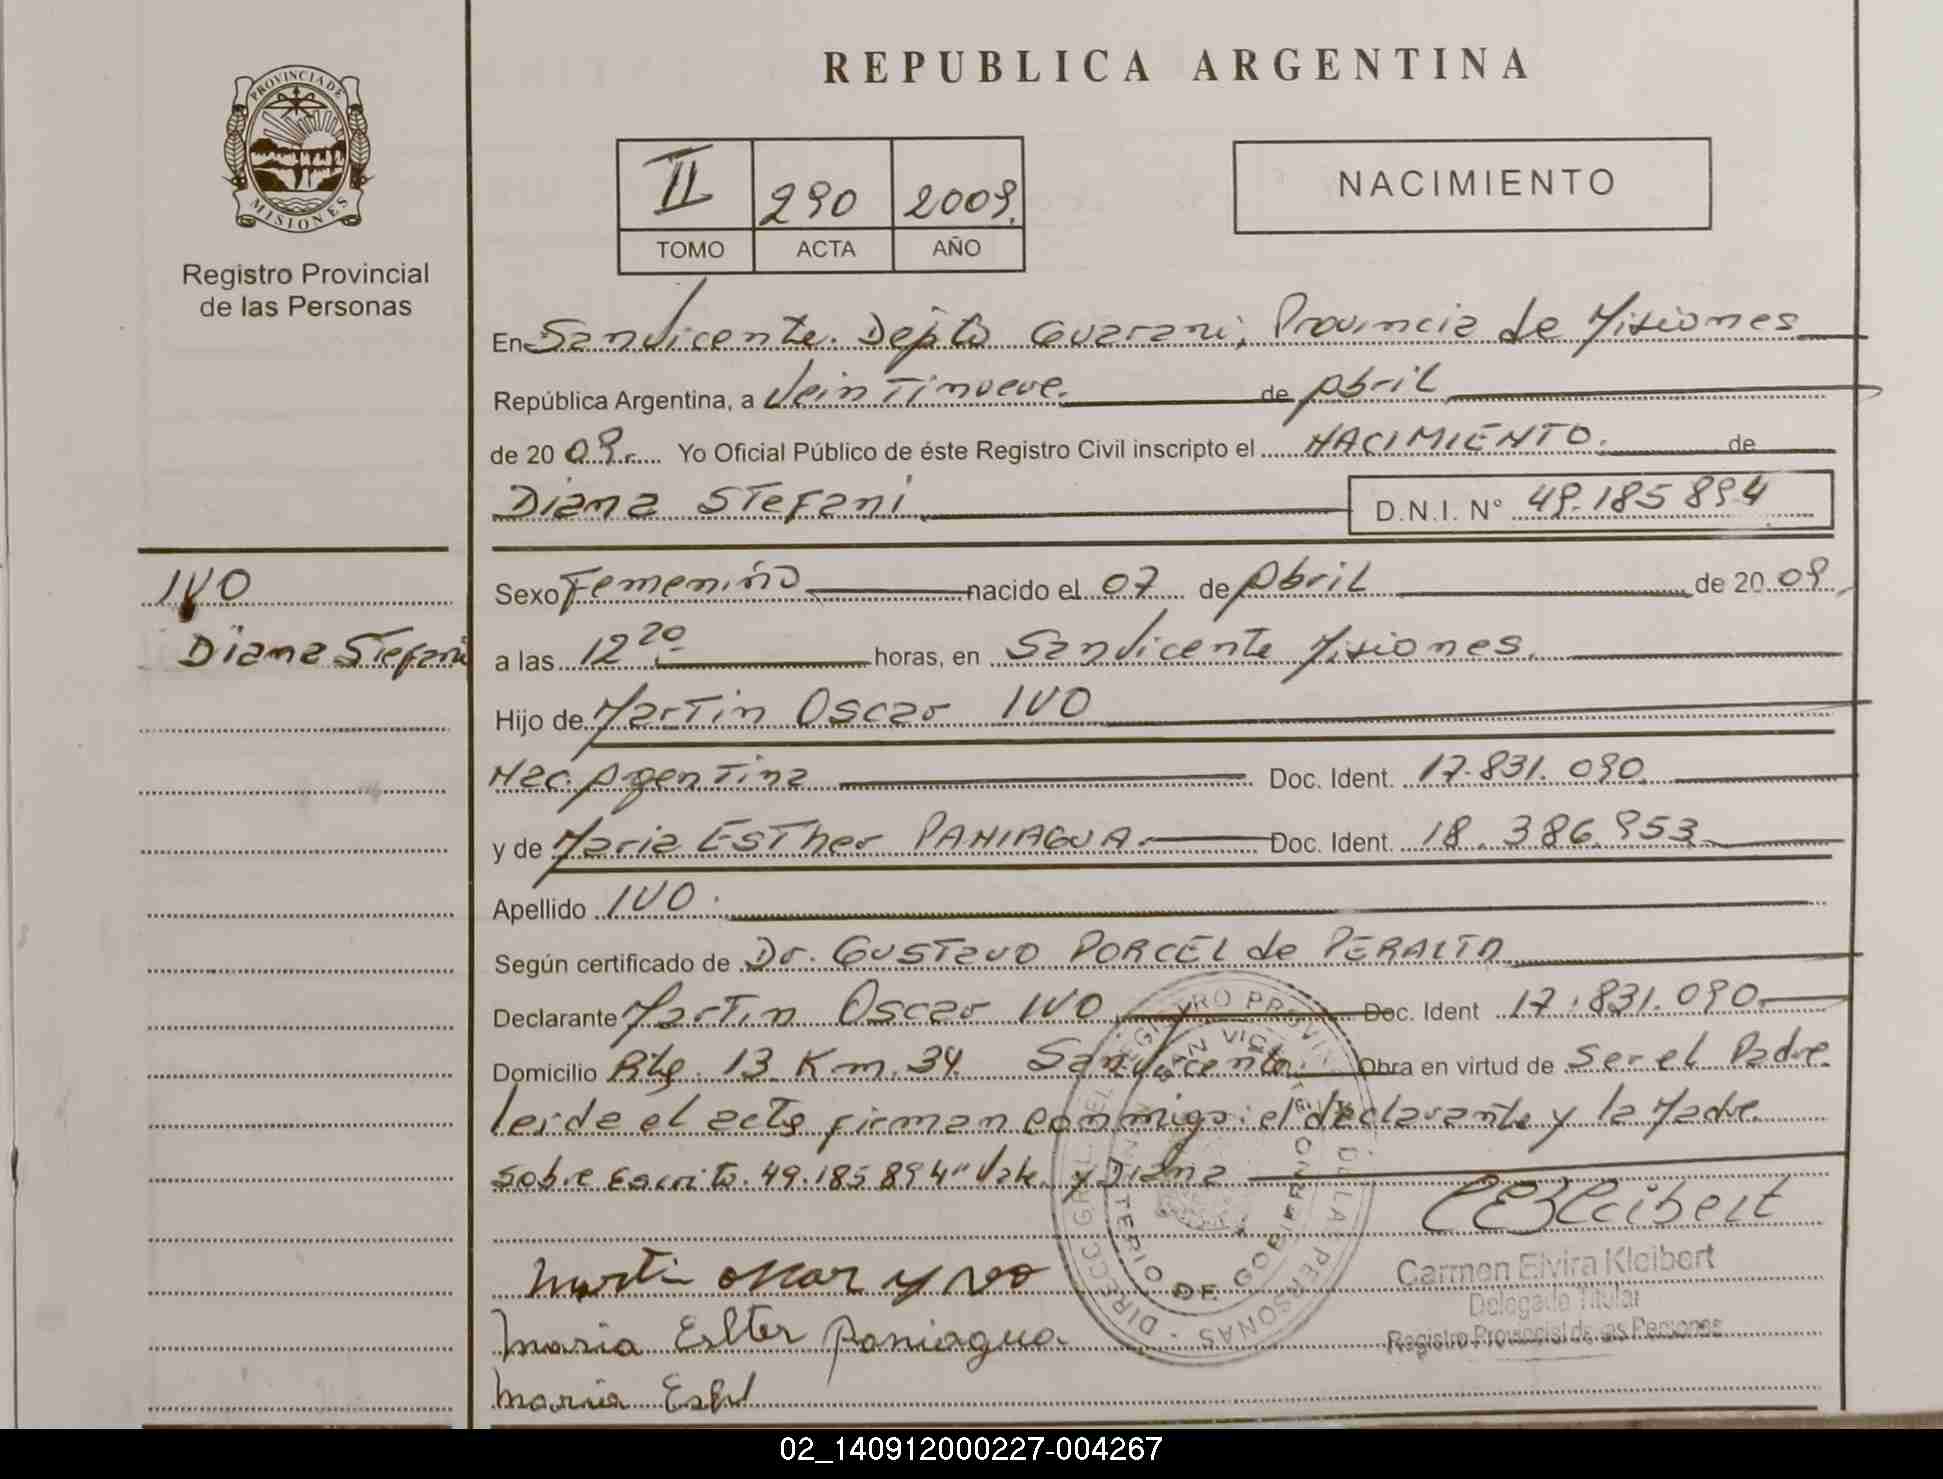 REPUBLICA ARGENTINA
PROVINCIA DE
MISIONES
Registro Provincial
de las Personas
II 290 2009.
TOMO ACTA AÑO
NACIMIENTO
En San Vicente. Depto Guarani, Provincia de Misiones
República Argentina, a Veintinueve. de Abril
de 20 09. Yo Oficial Público de éste Registro Civil inscripto el NACIMIENTO. de
Diana Stefani D.N.I. N° 49.185.894
IVO
Diana Stefani
Sexo Femenino nacido el 07 de Abril de 20 09.
a las 12 20 horas, en San Vicente Misiones.
Hijo de Martin Oscar IVO
Nac. Agentina Doc. Ident. 17.831.090
y de Maria Esther PANIAGUA Doc. Ident. 18.386.953
Apellido IVO.
Según certificado de Dr. Gustavo PORCEL de PERALTA
Declarante Martin Oscar IVO Doc. Ident 17.831.090
Domicilio 13 Km. 34. San Vicente. Obra en virtud de Ser el Padre.
leida el acta firman conmigo: el declarante y la Madre.
Sobre Escrito. 49.185.894" Vale. y Diana
DIRECC GRAL DEL REGISTRO PROVINCIAL DE LAS PERSONAS
SAN VICENTE
MINISTERIO DE GOBIERNO
CEKleibert
Carmen Elvira Kleibert
Delegado Titular
Registro Provincial de las Personas
Martin oscar yvo
maria Ester paniagua.
maria
02_140912000227-004267